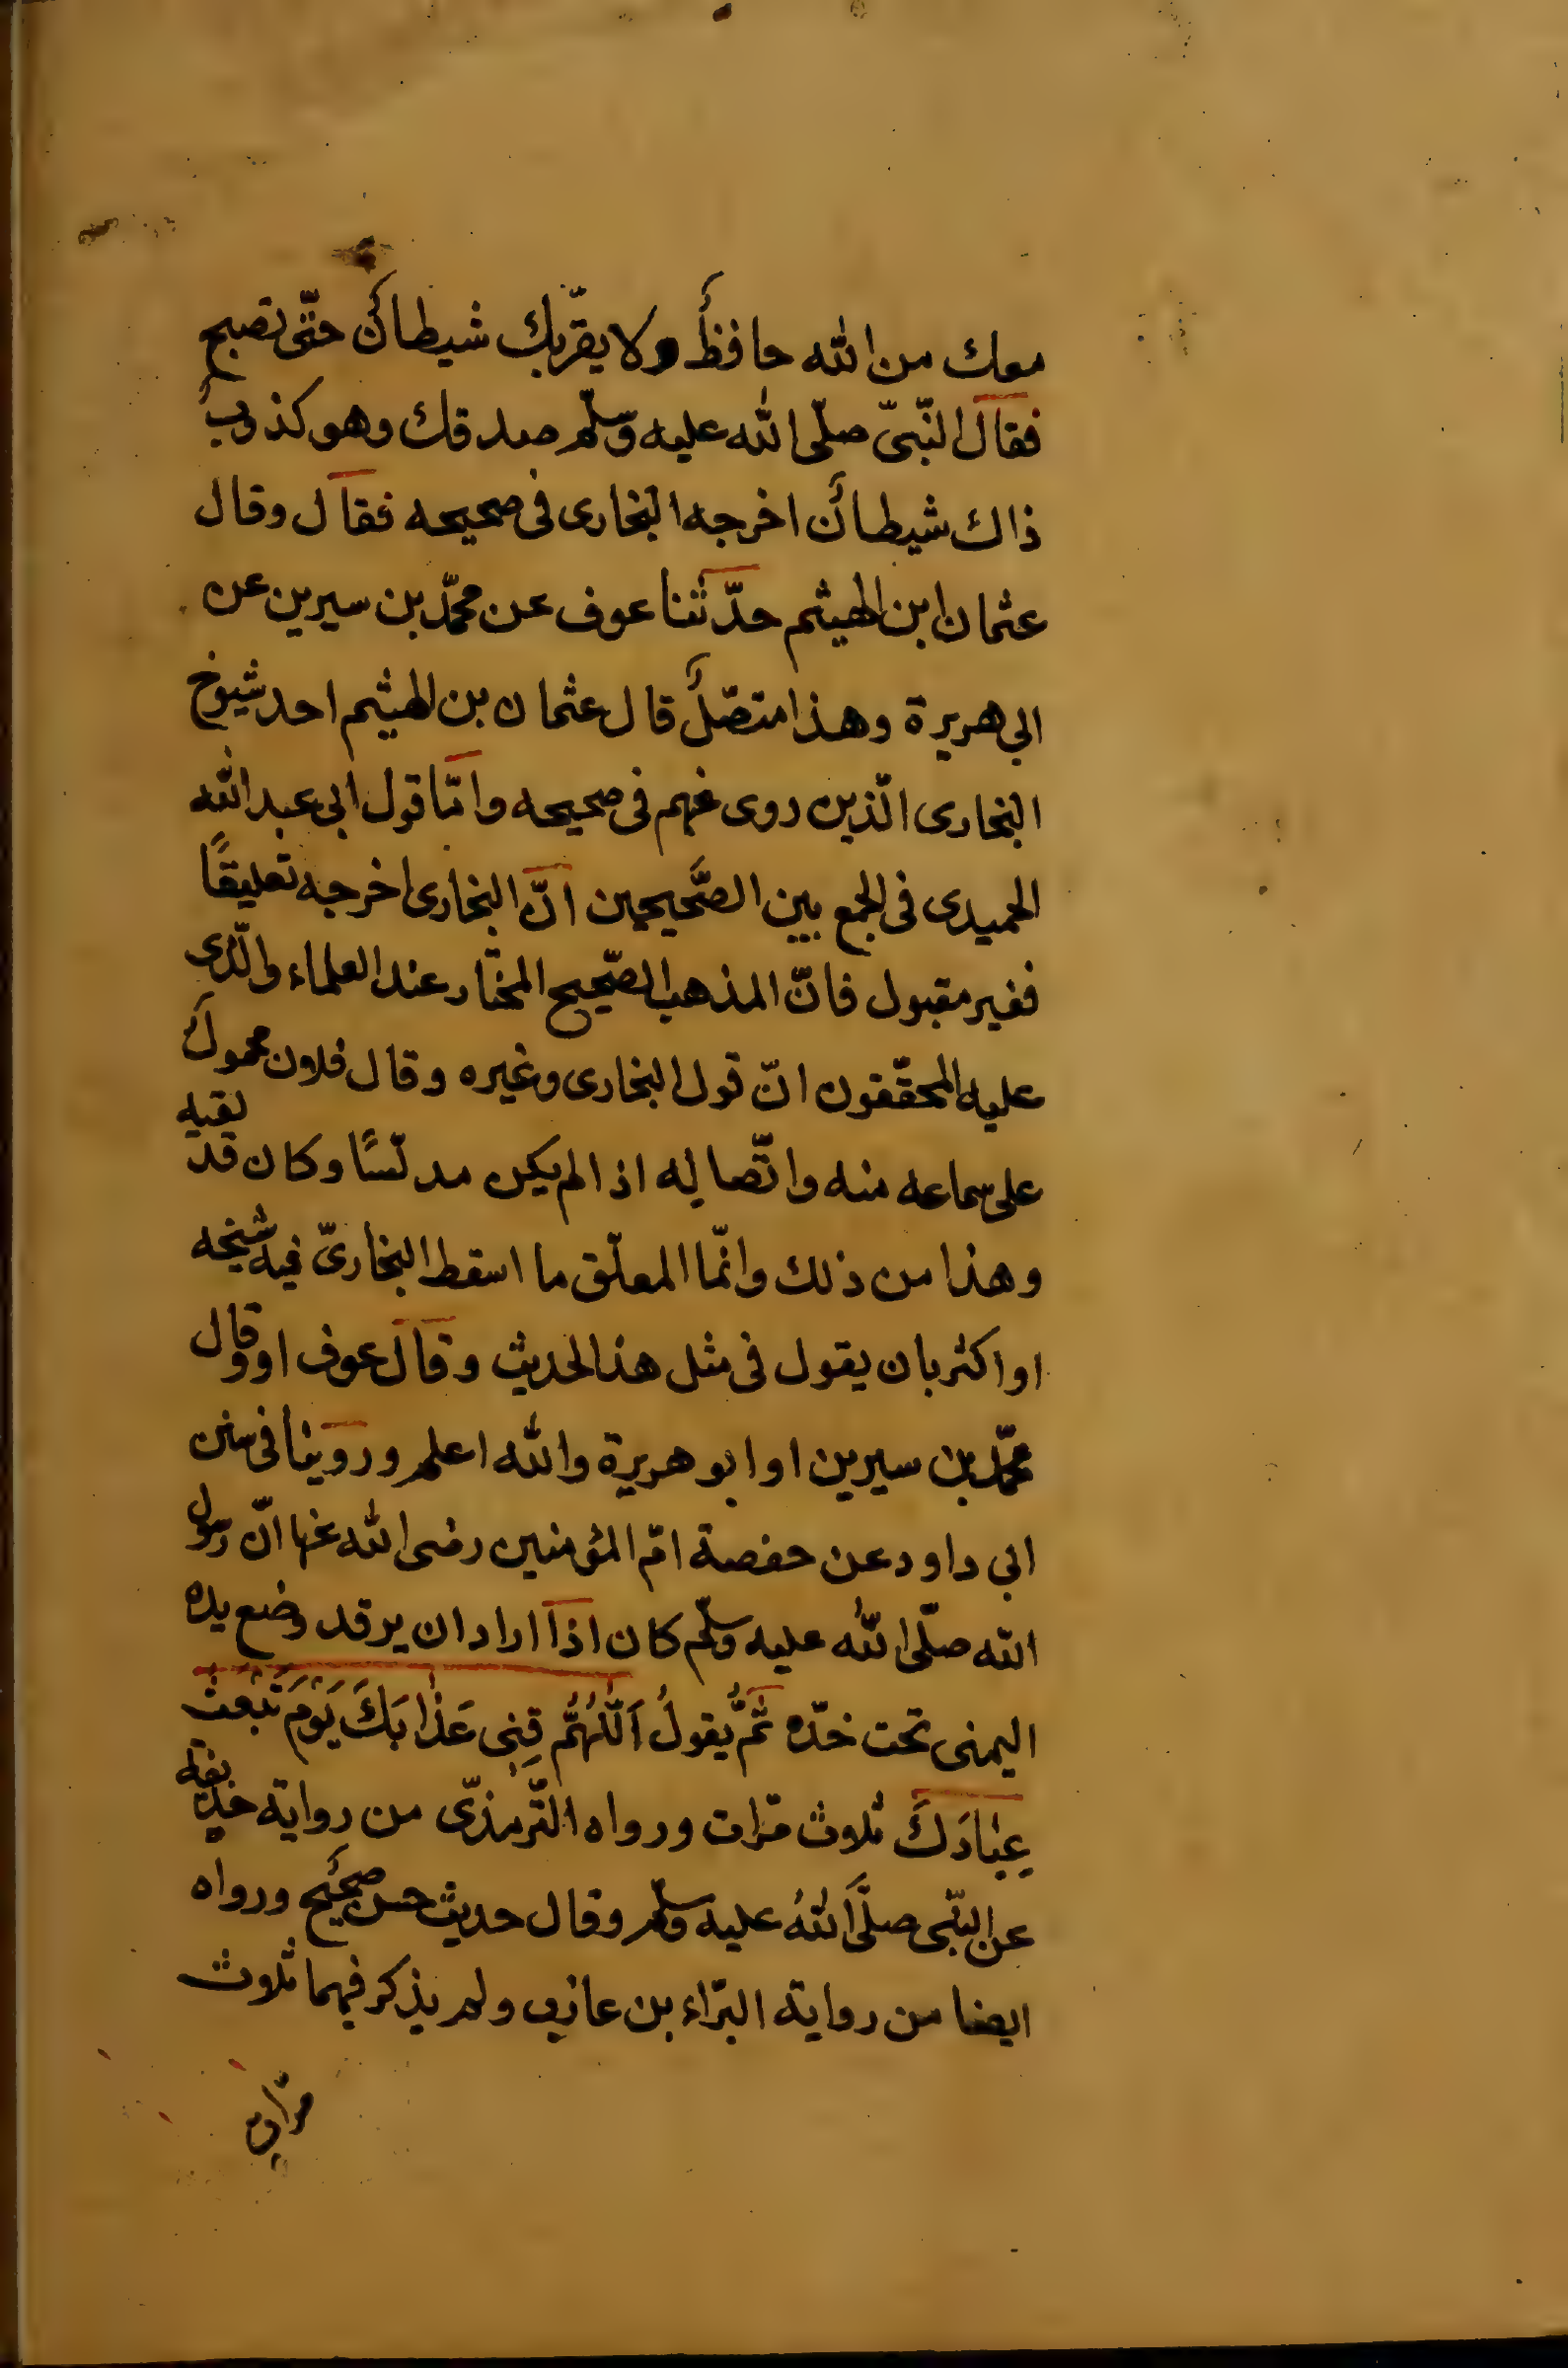 معك من الله حافظٌ ولا يقرّبك شيطانٌ حتّى تصبح
فقال النّبىّ صلّى الله عليه وسلّم صدقك وهو كذوبٌ
ذاك شيطانٌ اخرجه البخارى فى صحيحه فقال وقال
عثمان ابن الهيثم حدّثنا عوف عن محمّد بن سيرين عن
ابى هريرة وهذا متصّلٌ قال عثمان بن الهيثم احد شيوخ
البخارى الّذين روى عنهم فى صحيحه وامّا قول ابى عبد الله
الحميدى فى الجمع بين الصّحيحين انّ البخارى اخرجه تعليقًا
فغير مقبول فانّ المذهب الصّحيح المختار عند العلماء والّذى
عليه المحقّقون انّ قول البخارى وغيره وقال فلان محمولٌ
على سماعه منه واتّصاله اذا لم يكن مدلّسًا وكان قد لقيه
وهذا من ذلك وانّما المعلّق ما اسقط البخارىّ فيه شيخه
او اكثر بان يقول فى مثل هذا الحديث وقال عوف او وقال
محمّد بن سيرين او ابو هريرة والله اعلم وروينا فى سنن
ابى داود عن حفصة امّ المؤمنين رضى الله عنها انّ رسول
الله صلّى الله عليه وسلّم كان اذا اراد ان يرقد وضع يده
اليمنى تحت خدّه ثُمَّ يقولُ اَللّٰهُمَّ قِنِى عَذَابَكَ يَوْمَ تَبْعَثُ
عِبَادَكَ ثلاث مرّات ورواه التّرمذىّ من رواية حذيفة
عن النّبى صلَّى اللهُ عليه وسلّم وقال حديث حسن صحيحٌ ورواه
ايضا من رواية البرّاء بن عازب ولم يذكر فيهما ثلاث
مرّات